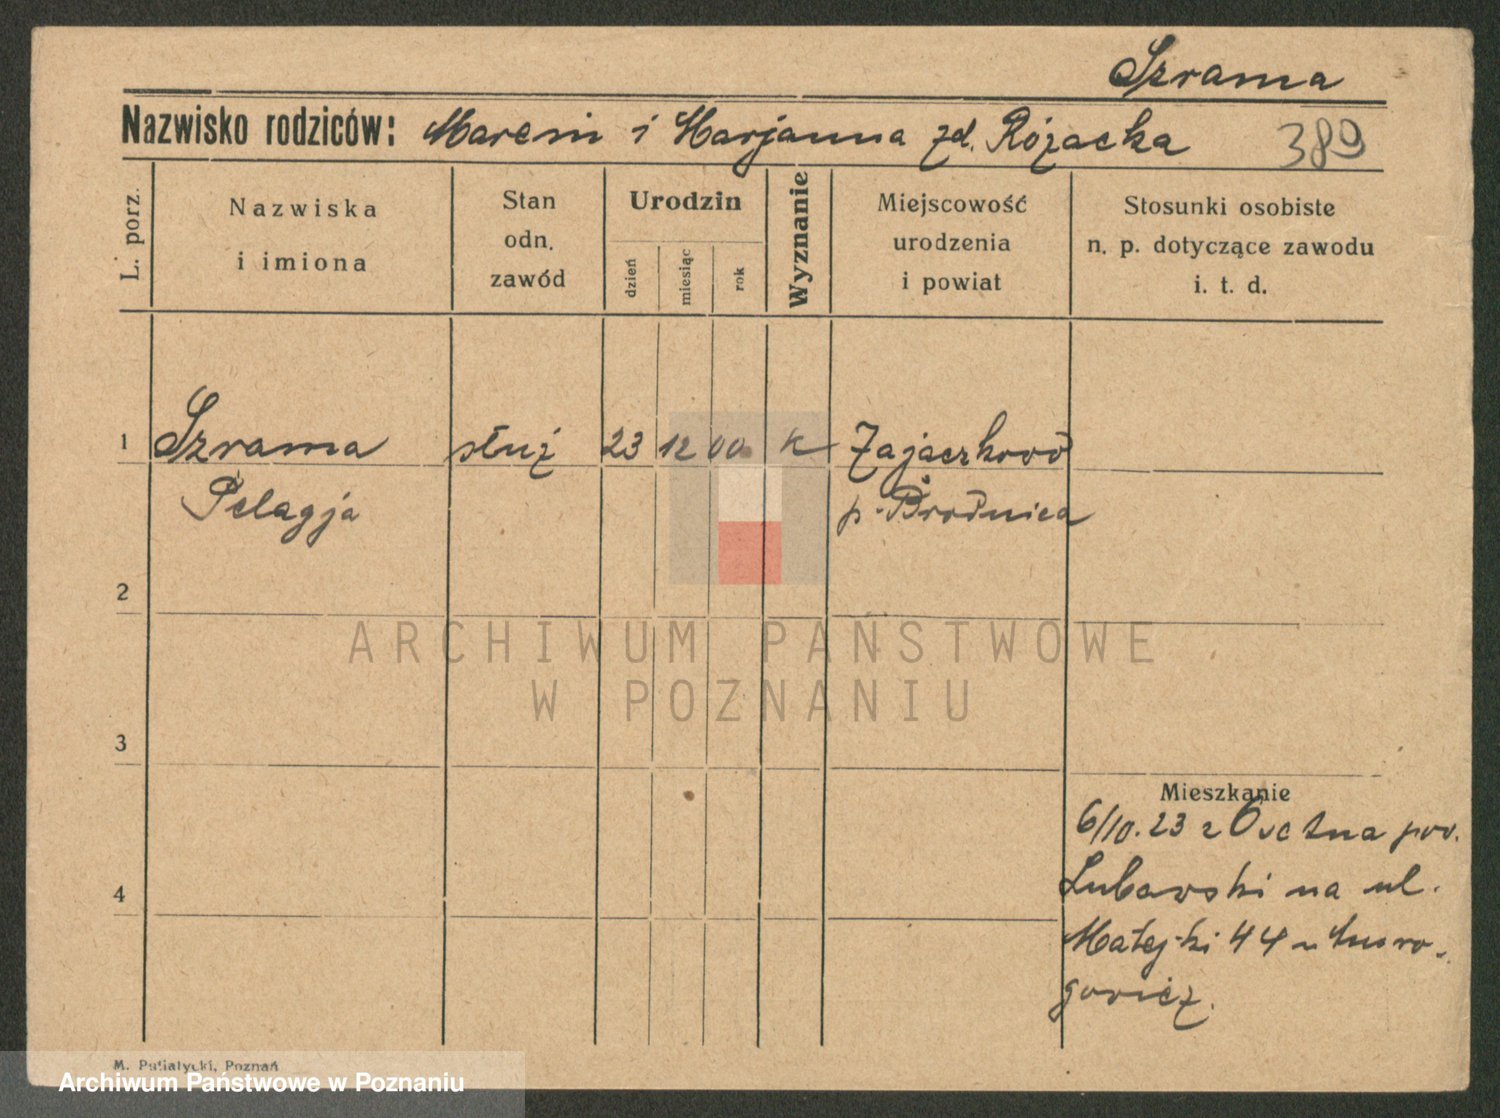 Szrama
Nazwisko rodziców: Marcin i Marjanna zd. Różacka
389
L. porz.
Nazwiska
i imiona
Stan
odn.
zawód
Urodzin
dzień
miesiąc
rok
Wyznanie
Miejscowość
urodzenia
i powiat
Stosunki osobiste
n. p. dotyczące zawodu
i. t. d.
1 Szrama służ 23 12 00 k Zajaczkowo
Pelagja p. Brodnica
2
ARCHIWUM PAŃSTWOWE
W POZNANIU
3
Mieszkanie
6/10.23 z pow.
4 Lubawski na ul.
Matejki 44 u
M. Putiatycki, Poznań
Archiwum Państwowe w Poznaniu